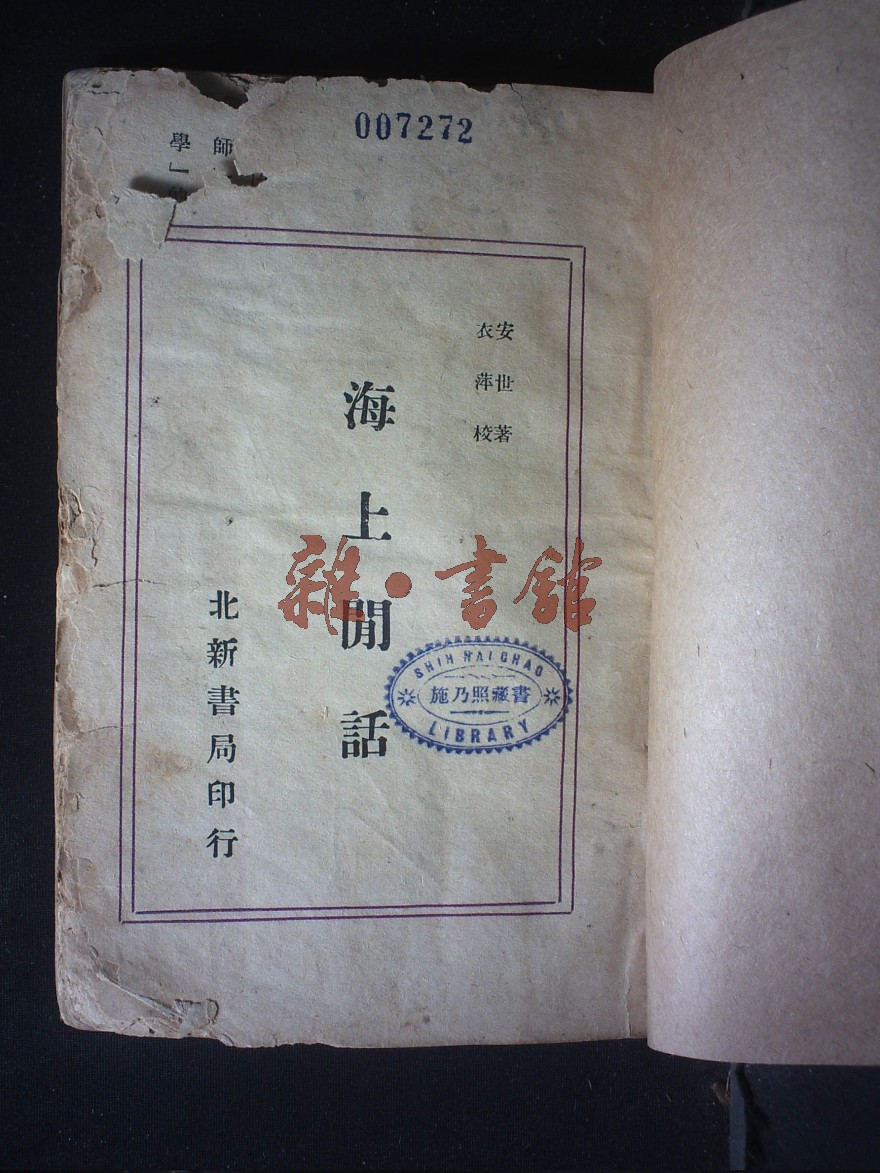 007272
師
學」
安世著
衣萍校
海上閒話
北新書局印行
雜·書館
SHIH NAI CHAO
施乃照藏書
LIBRARY